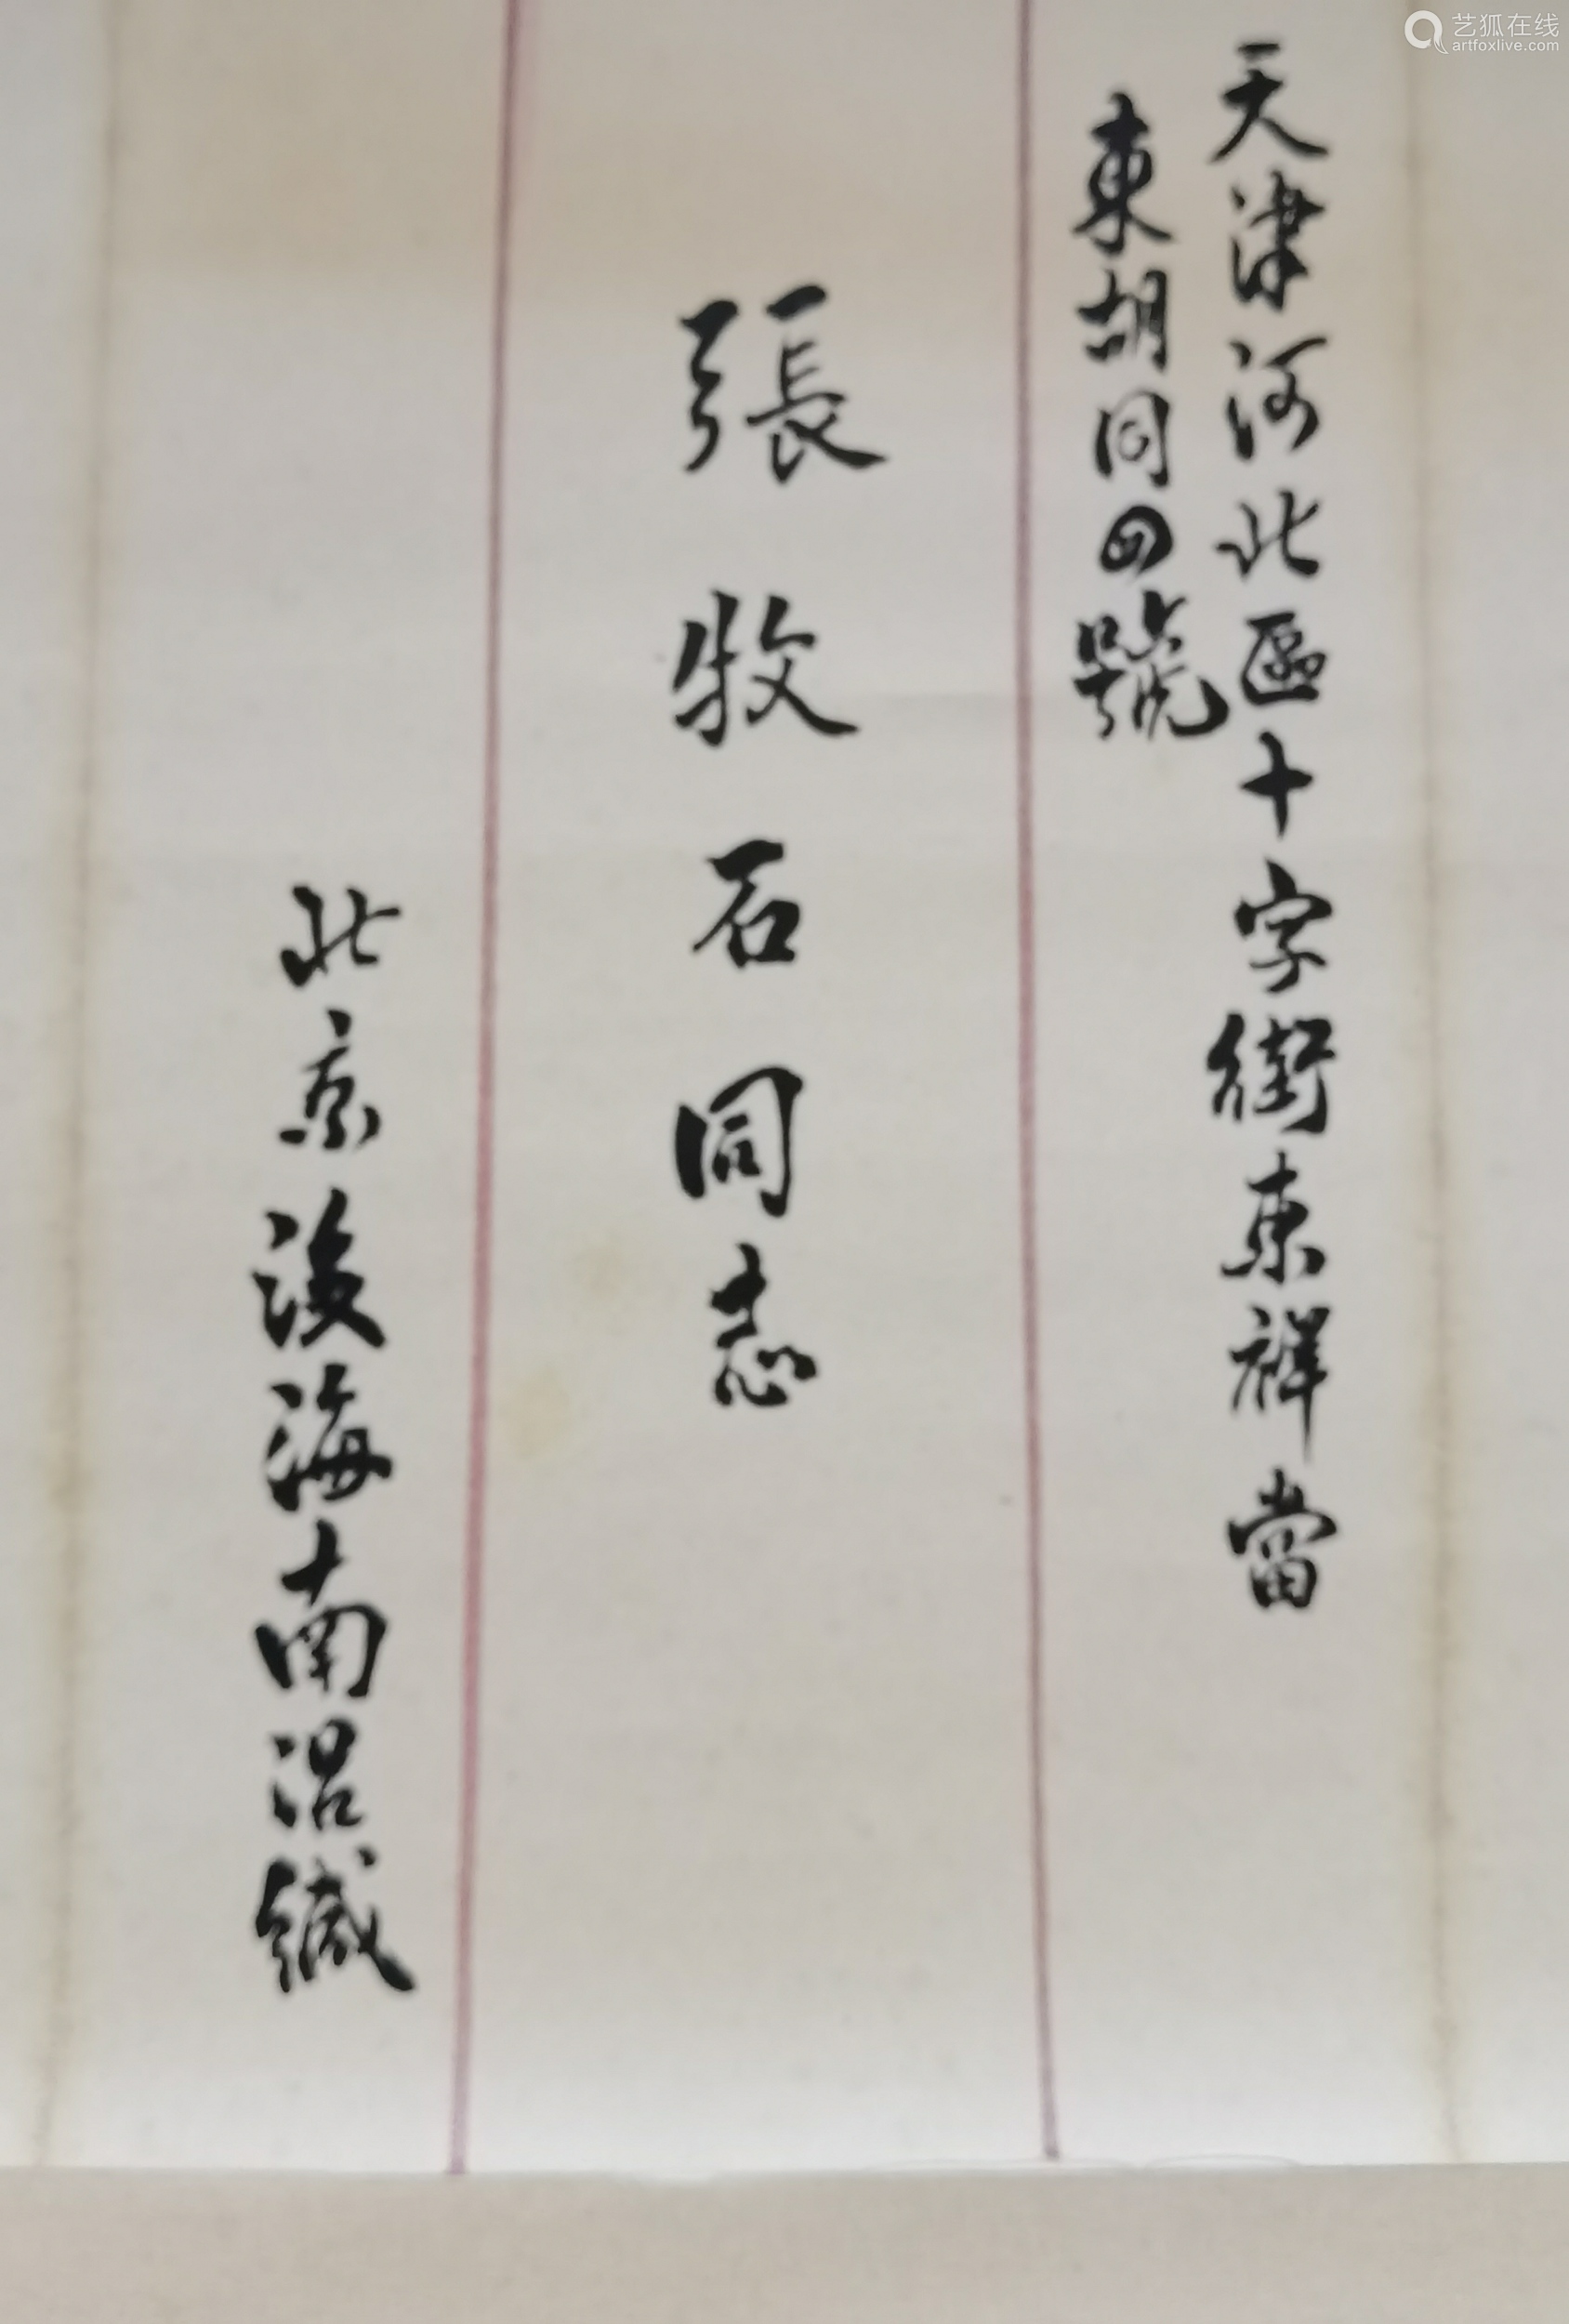 天津河北區十字街東祥當
東胡同四號
張牧石同志
北京後海南沿緘
艺狐在线
artfoxlive.com